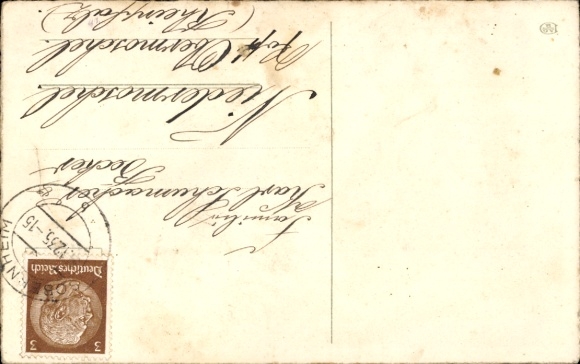 Familie
Karl Schumacher
Becker
Niedermoschel
Post Obermoschel
(Rheinpfalz)
Deutsches Reich
3
3